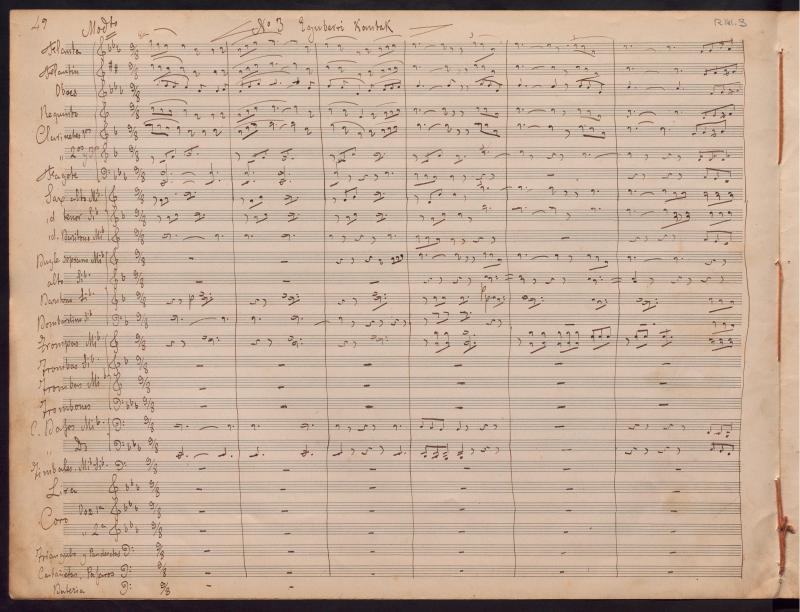 49 Modto No 3 Eguberri Kantak
Flauta
Flautin
Oboes
Requinto
Clarinetes 1os
" 2os y 3os
Fagote
Saxo alto Mib
id tenor Sib
id. Baritono Mib
Bugle soprano Mib
alto Sib.
Baritono Sib.
Bombardino Sib
Trompas Mib.
Trombas Sib.
Trombas Mib
Trombones
C. Bajos Mib.
" Do
Timbales. Mib Sib.
Lira
Coro Voz 1a
" 2a
Triangulo y Panderetas
Castañetas, Pajaros
Bateria